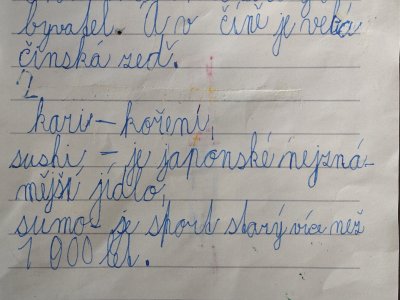 byvatel. A v číně je velká
čínská zeď.
2.
kari – koření,
sushi – je japonské nejzná-
mější jídlo,
sumo – je sport starý více než
1 900 let.